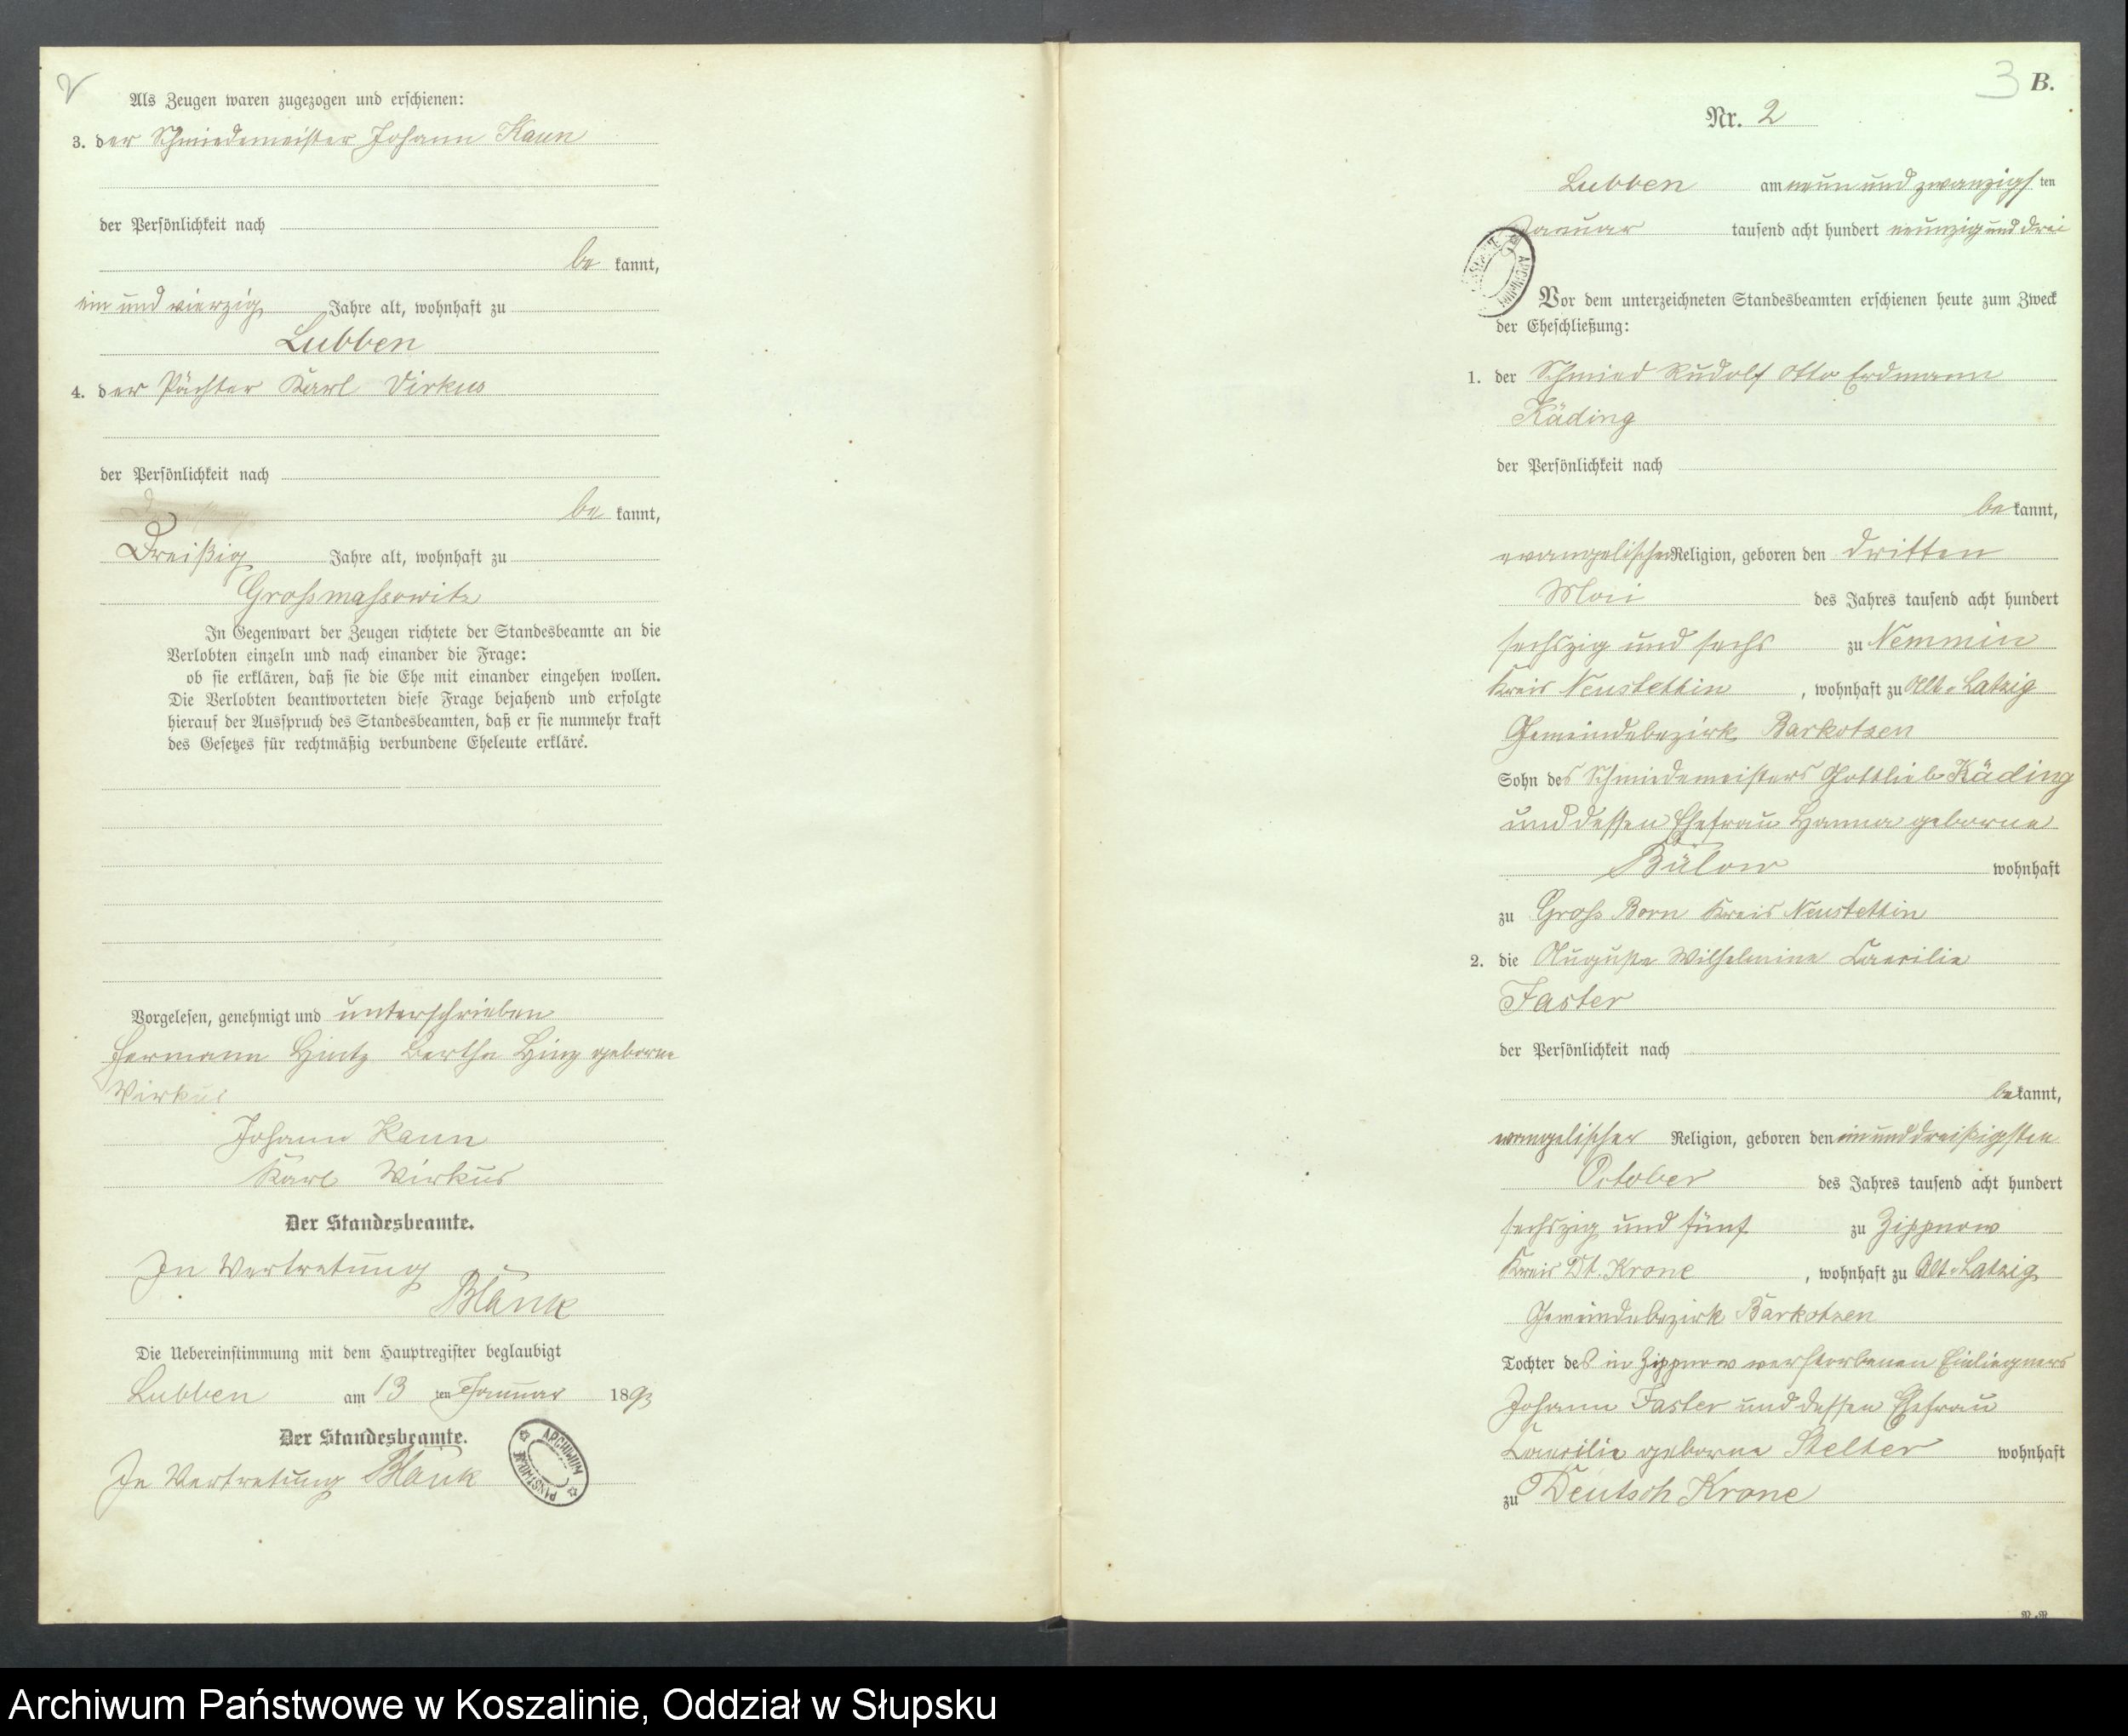 2
Als Zeugen waren zugezogen und erschienen:
3. der Schmiedemeister Johann Kaun
der Persönlichkeit nach
be kannt,
ein und vierzig Jahre alt, wohnhaft zu
Lubben
4. der Pächter Karl Virkus
der Persönlichkeit nach
be kannt,
Dreißig Jahre alt, wohnhaft zu
Großmassowitz
In Gegenwart der Zeugen richtete der Standesbeamte an die
Verlobten einzeln und nach einander die Frage:
ob sie erklären, daß sie die Ehe mit einander eingehen wollen.
Die Verlobten beantworteten diese Frage bejahend und erfolgte
hierauf der Ausspruch des Standesbeamten, daß er sie nunmehr kraft
des Gesetzes für rechtmäßig verbundene Eheleute erkläre.
Vorgelesen, genehmigt und unterschrieben
Hermann Hintz Bertha Hinz geborne
Wirkus
Johann Kaun
Karl Wirkus
Der Standesbeamte.
In Vertretung
Blank
Die Uebereinstimmung mit dem Hauptregister beglaubigt
Lubben am 13 ten Januar 1893
Der Standesbeamte.
In Vertretung Blank
ARCHIWUM PAŃSTWOWE
3 B.
Nr. 2
Lubben am neun und zwanzigs ten
Januar tausend acht hundert neunzig und drei
Vor dem unterzeichneten Standesbeamten erschienen heute zum Zweck
der Eheschließung:
1. der Schmied Rudolf Otto Erdmann
Käding
der Persönlichkeit nach
be kannt,
evangelischer Religion, geboren den dritten
Mai des Jahres tausend acht hundert
sechszig und sechs zu Nemmin
Kreis Neustettin, wohnhaft zu Alt-Latzig
Gemeindebezirk Barkotzen
Sohn des Schmiedemeisters Gottlieb Käding
und dessen Ehefrau Hanna geborne
Bülow wohnhaft
zu Groß Born Kreis Neustettin
2. die Auguste Wilhelmine Caecilie
Faster
der Persönlichkeit nach
be kannt,
evangelischer Religion, geboren den ein und dreißigsten
October des Jahres tausend acht hundert
sechszig und fünf zu Zippnow
Kreis Dt. Krone, wohnhaft zu Alt-Latzig
Gemeindebezirk Barkotzen
Tochter des in Zippnow verstorbenen Einliegers
Johann Faster und dessen Ehefrau
Caecilie geborne Stelter wohnhaft
zu Deutsch Krone
Archiwum Państwowe w Koszalinie, Oddział w Słupsku